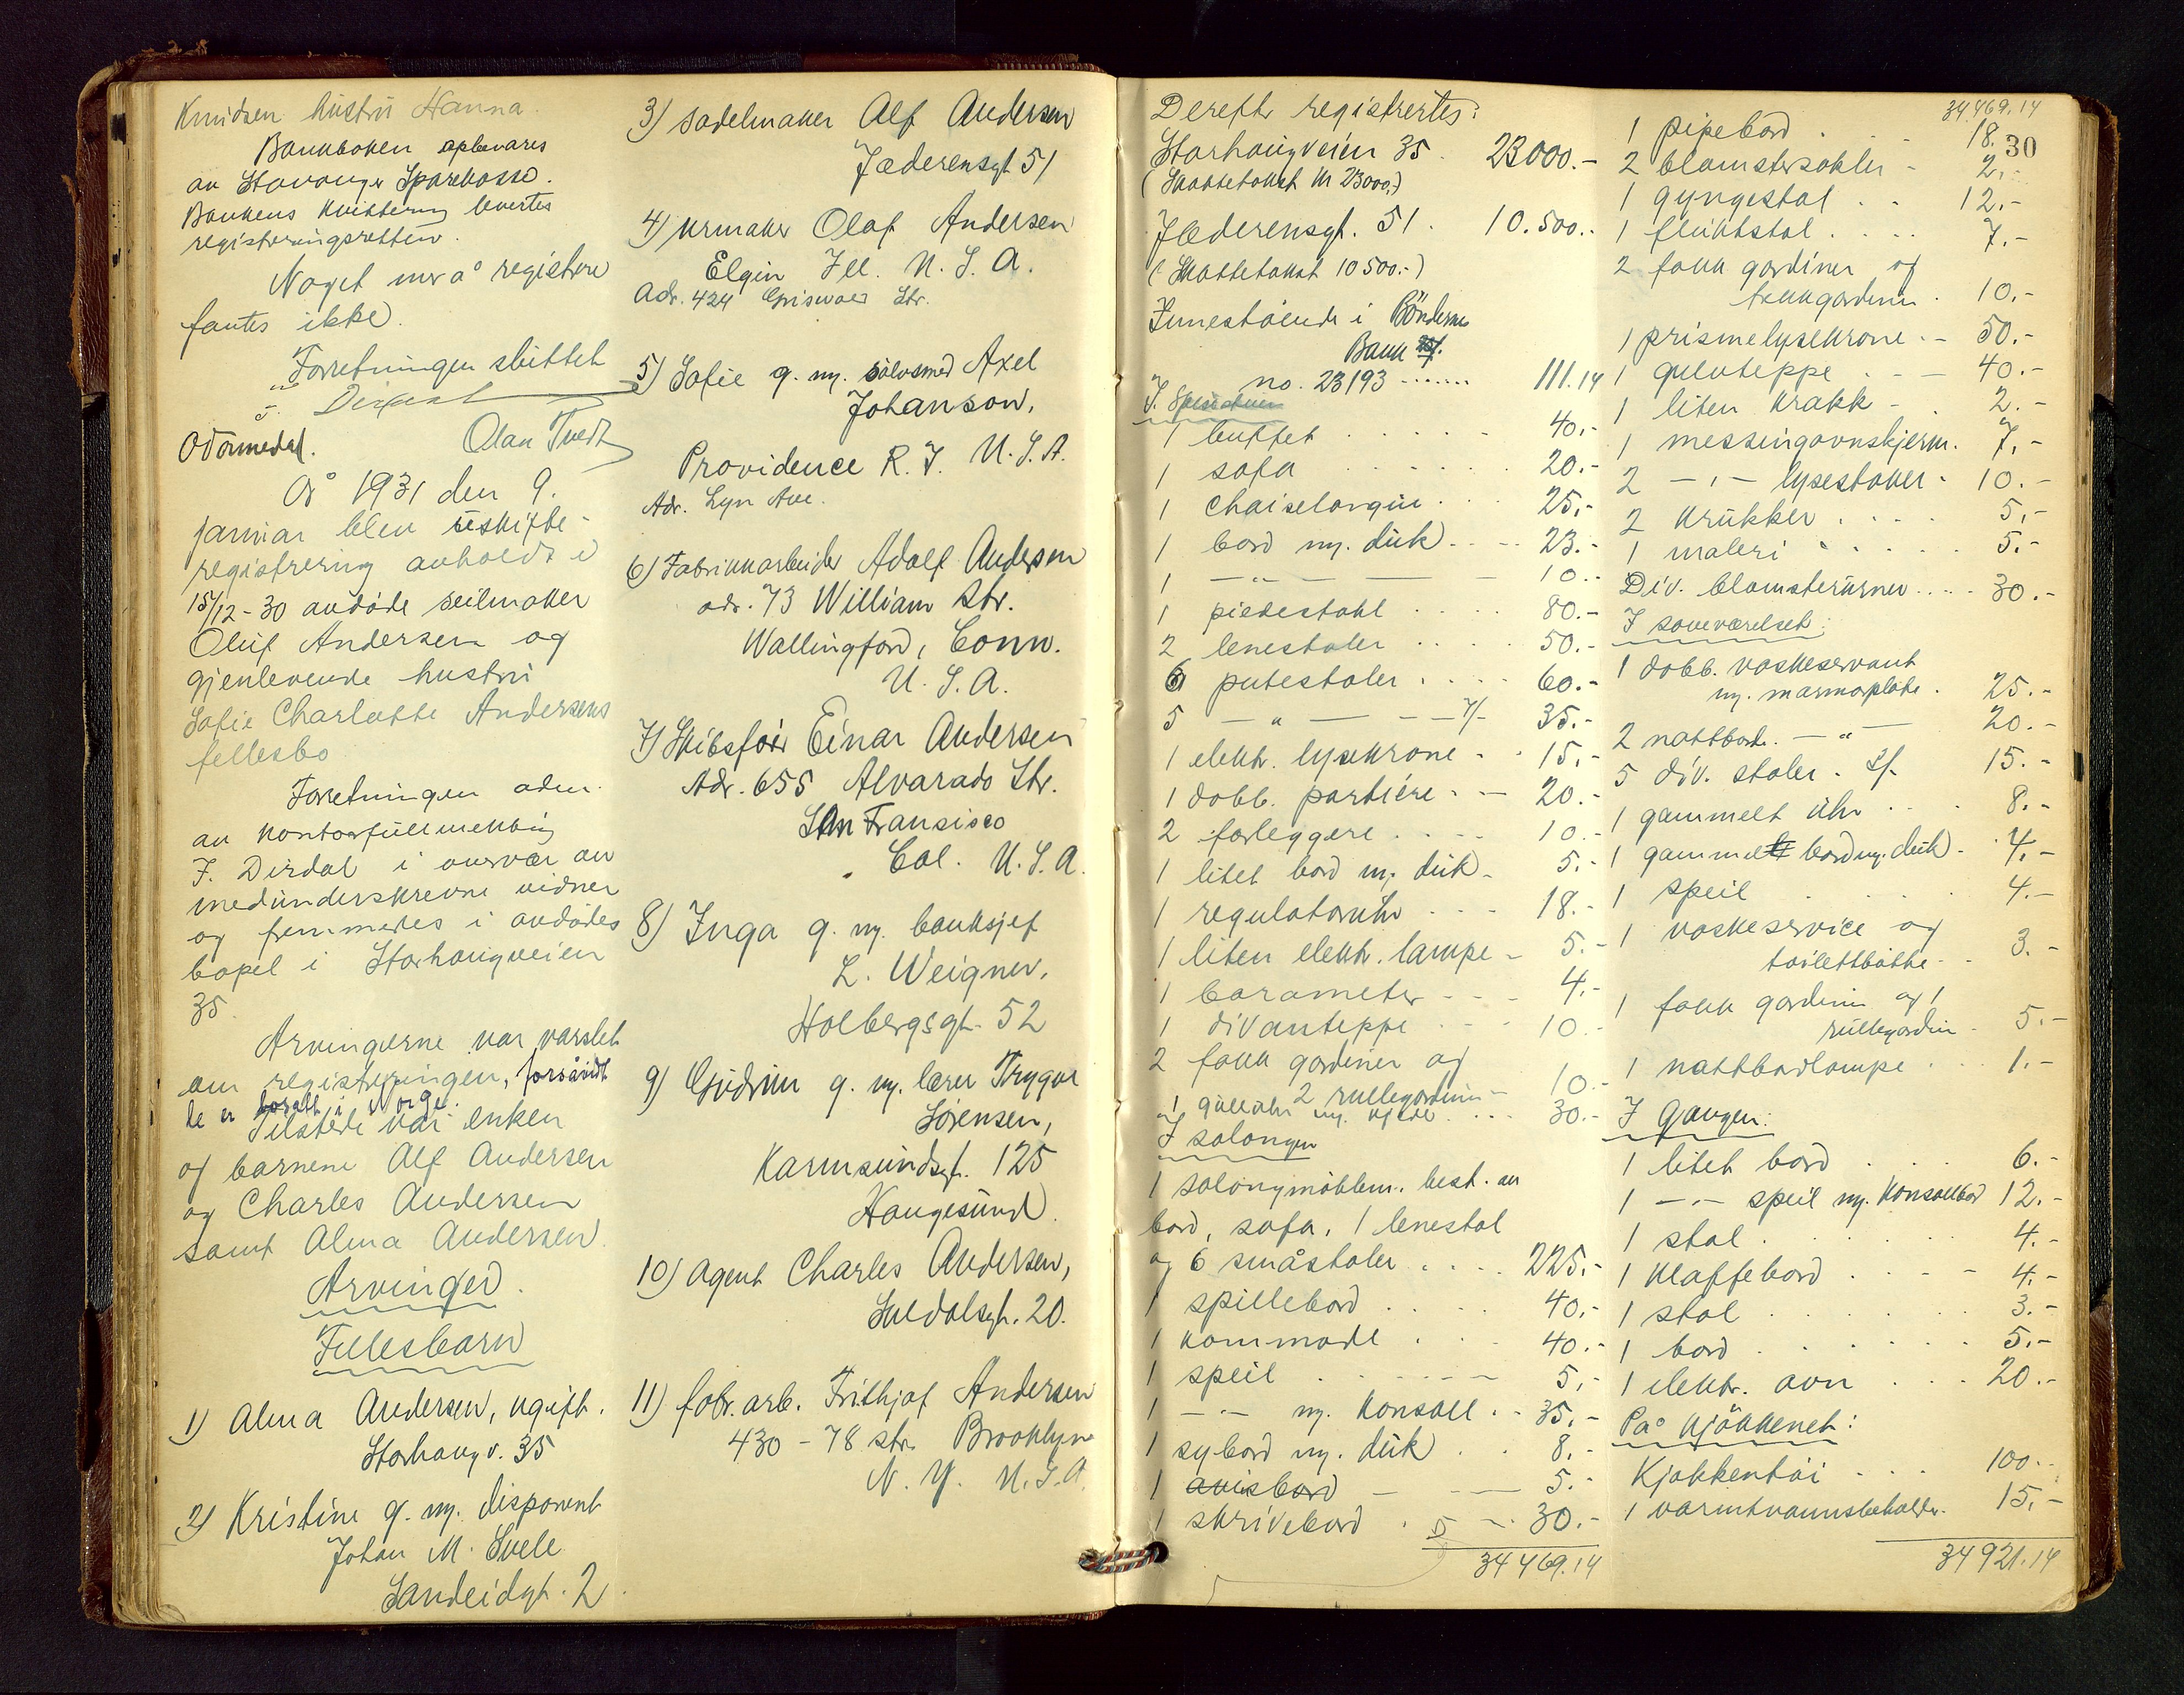 Knudsen hustru Hanna.
Bankboken opbevares
av Stavanger Sparekasse.
Bankens kvittering levertes
registreringsretten.
Noget mer å registrere
fantes ikke.
Forretningen sluttet
Dirdal
Olav Tvedt
År 1931 den 9.
januar blev uskifte-
registrering avholdt i
15/12-30 avdøde seilmaker
Oluf Andersen og
gjenlevende hustru
Sofie Charlotte Andersens
fellesbo
Forretningen adm.
av kontorfullmektig
J. Dirdal i overvær av
medunderskrevne vidner
og fremmedes i avdødes
bopel i Storhaugveien
35.
Arvingerne var varslet
om registreringen, forsåvidt
de er bosatt i Norge.
Tilstede var enken
og barnene Alf Andersen
og Charles Andersen
samt Alma Andersen.
Arvinger.
Fellesbarn
1) Alma Andersen, ugift.
Storhaugv. 35
2) Kristine g. m. disponent
Johan M. Svele
Sandeidgt. 2.
3) sadelmaker Alf Andersen
Jæderensgt 51
4) urmaker Olaf Andersen
Elgin Ill. U.S.A.
Adr. 424 Str.
5) Sofie g. m. sølvsmed Axel
Johanson,
Providence R.I. U.S.A.
Adr. Lyn Ave.
6) Fabrikkarbeider Adolf Andersen
adr. 73 William Str.
Wallingford, Conn.
U.S.A.
7) Skibsfører Einar Andersen
Adr. 655 Alvarado Str.
San Fransisco
Cal. U.S.A.
8) Inga g. m. banksjef
L. Weigner,
Holbergsgt. 52
9) Gudrun g. m. lærer Trygve
Sørensen,
Karmsundsgt. 125
Haugesund.
10) agent Charles Andersen,
Suldalsgt. 20.
11) fabr. arb. Frithjof Andersen
430 - 78 str. Brooklyn
N.Y. U.S.A.
Derefter registrertes:
Storhaugveien 35. 23000.-
(Skattetakst kr 23000.-)
Jæderensgt. 51. 10.500.-
(Skattetakst 10500.-)
Innestående i Bøndernes
Bank
no. 23193 ....... 111.14
I Spisestuen
1 buffet 40.-
1 sofa 20.-
1 chaiselongue 25.-
1 bord m. duk 23.-
1 -"- 10.-
1 piedestahl 80.-
2 lenestoler 50.-
6 putestoler 60.-
5 -"- 7/- 35.-
1 elektr. lysekrone 15.-
1 dobb. portiére 20.-
2 forleggere 10.-
1 litet bord m. duk 5.-
1 regulatoruhr 18.-
1 liten elektr. lampe 5.-
1 barometer 4.-
1 divanteppe 10.-
2 fakk gardiner og
2 rullegardiner 10.-
1 gulluhr m. kjede 30.-
I salongen
1 salongmøblem. best. av
bord, sofa, 1 lenestol
og 6 småstoler 225.-
1 spillebord 40.-
1 kommode 40.-
1 speil 5.-
1 -"- m. konsoll 35.-
1 sybord m. duk 8.-
1 avisbord 5.-
1 skrivebord 30.-
34469.14
34469.14
30
1 pipebord 18.
2 blomstersokler 2.-
1 gyngestol 12.-
1 fluktstol 7.-
2 fakk gardiner og
trekkgardiner 10.-
1 prismelysekrone 50.-
1 gulvteppe 40.-
1 liten krakk 2.-
1 messingovnskjerm 7.-
2 -"- lysestaker 10.-
2 krukker 5.-
1 maleri 5.-
Div. blomsterurner 30.-
I soveværelset:
1 dobb. vaskeservant
m. marmorplate 25.-
2 nattbord. -"- 20.-
5 div. stoler. 3/- 15.-
1 gammelt uhr 8.-
1 gammelt bord m. duk 4.-
1 speil 4.-
1 vaskeservice og
toilettbøtte 3.-
1 fakk gardiner og 1
rullegardin 5.-
1 nattbordlampe 1.-
I Gangen:
1 litet bord 6.-
1 -"- speil m. konsollbord 12.-
1 stol 4.-
1 klaffebord 4.-
1 stol 3.-
1 bord 5.-
1 elektr. ovn 20.-
På kjøkkenet:
Kjøkkentøi 100.-
1 varmtvannsbeholder 15.-
34921.14